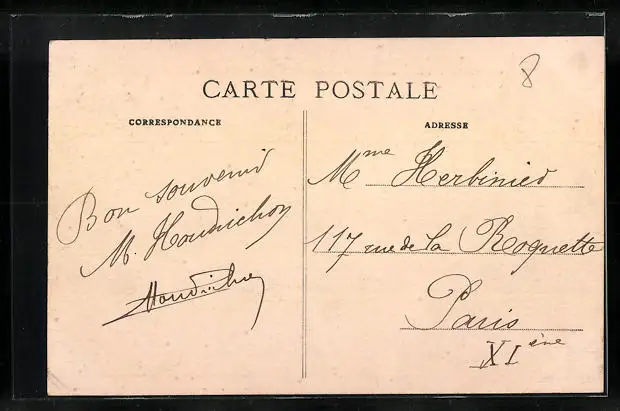 CARTE POSTALE
CORRESPONDANCE
Bon souvenir
M. Houdichon
ADRESSE
Mme Herbinier
117 rue de la Roquette
Paris
XIème
8